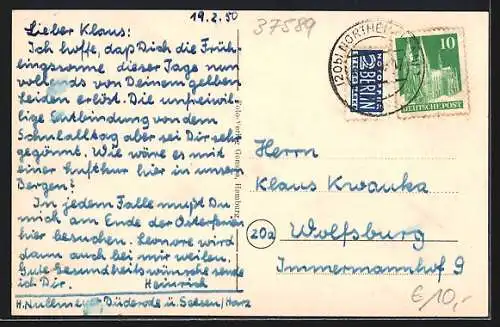 19.2.50
37589
Lieber Klaus!
Ich hoffe, daß Dich die Früh-
lingssonne dieser Tage nun
vollends von Deinem gelben
Leiden erlöst. Die unfreiwil-
lige Entbindung von dem
Schulalltag aber sei Dir sehr
gegönnt. Wie wäre es mit
einer Luftkur hier in unsern
Bergen?
In jedem Falle mußt Du
mich am Ende der Osterferien
hier besuchen. Leonore wird
dann auch bei mir weilen.
Gute Gesundheitswünsche sende
ich Dir. Heinrich
H. Nullmeyer Büderode ü. Seesen/Harz
Hamburg
(20b) NORTHEIM
NOTOPFER
2 BERLIN
STEUERMARKE
10
DEUTSCHE POST
Herrn
Klaus Kwauka
20a Wolfsburg
Immermannhof 9
€10,-